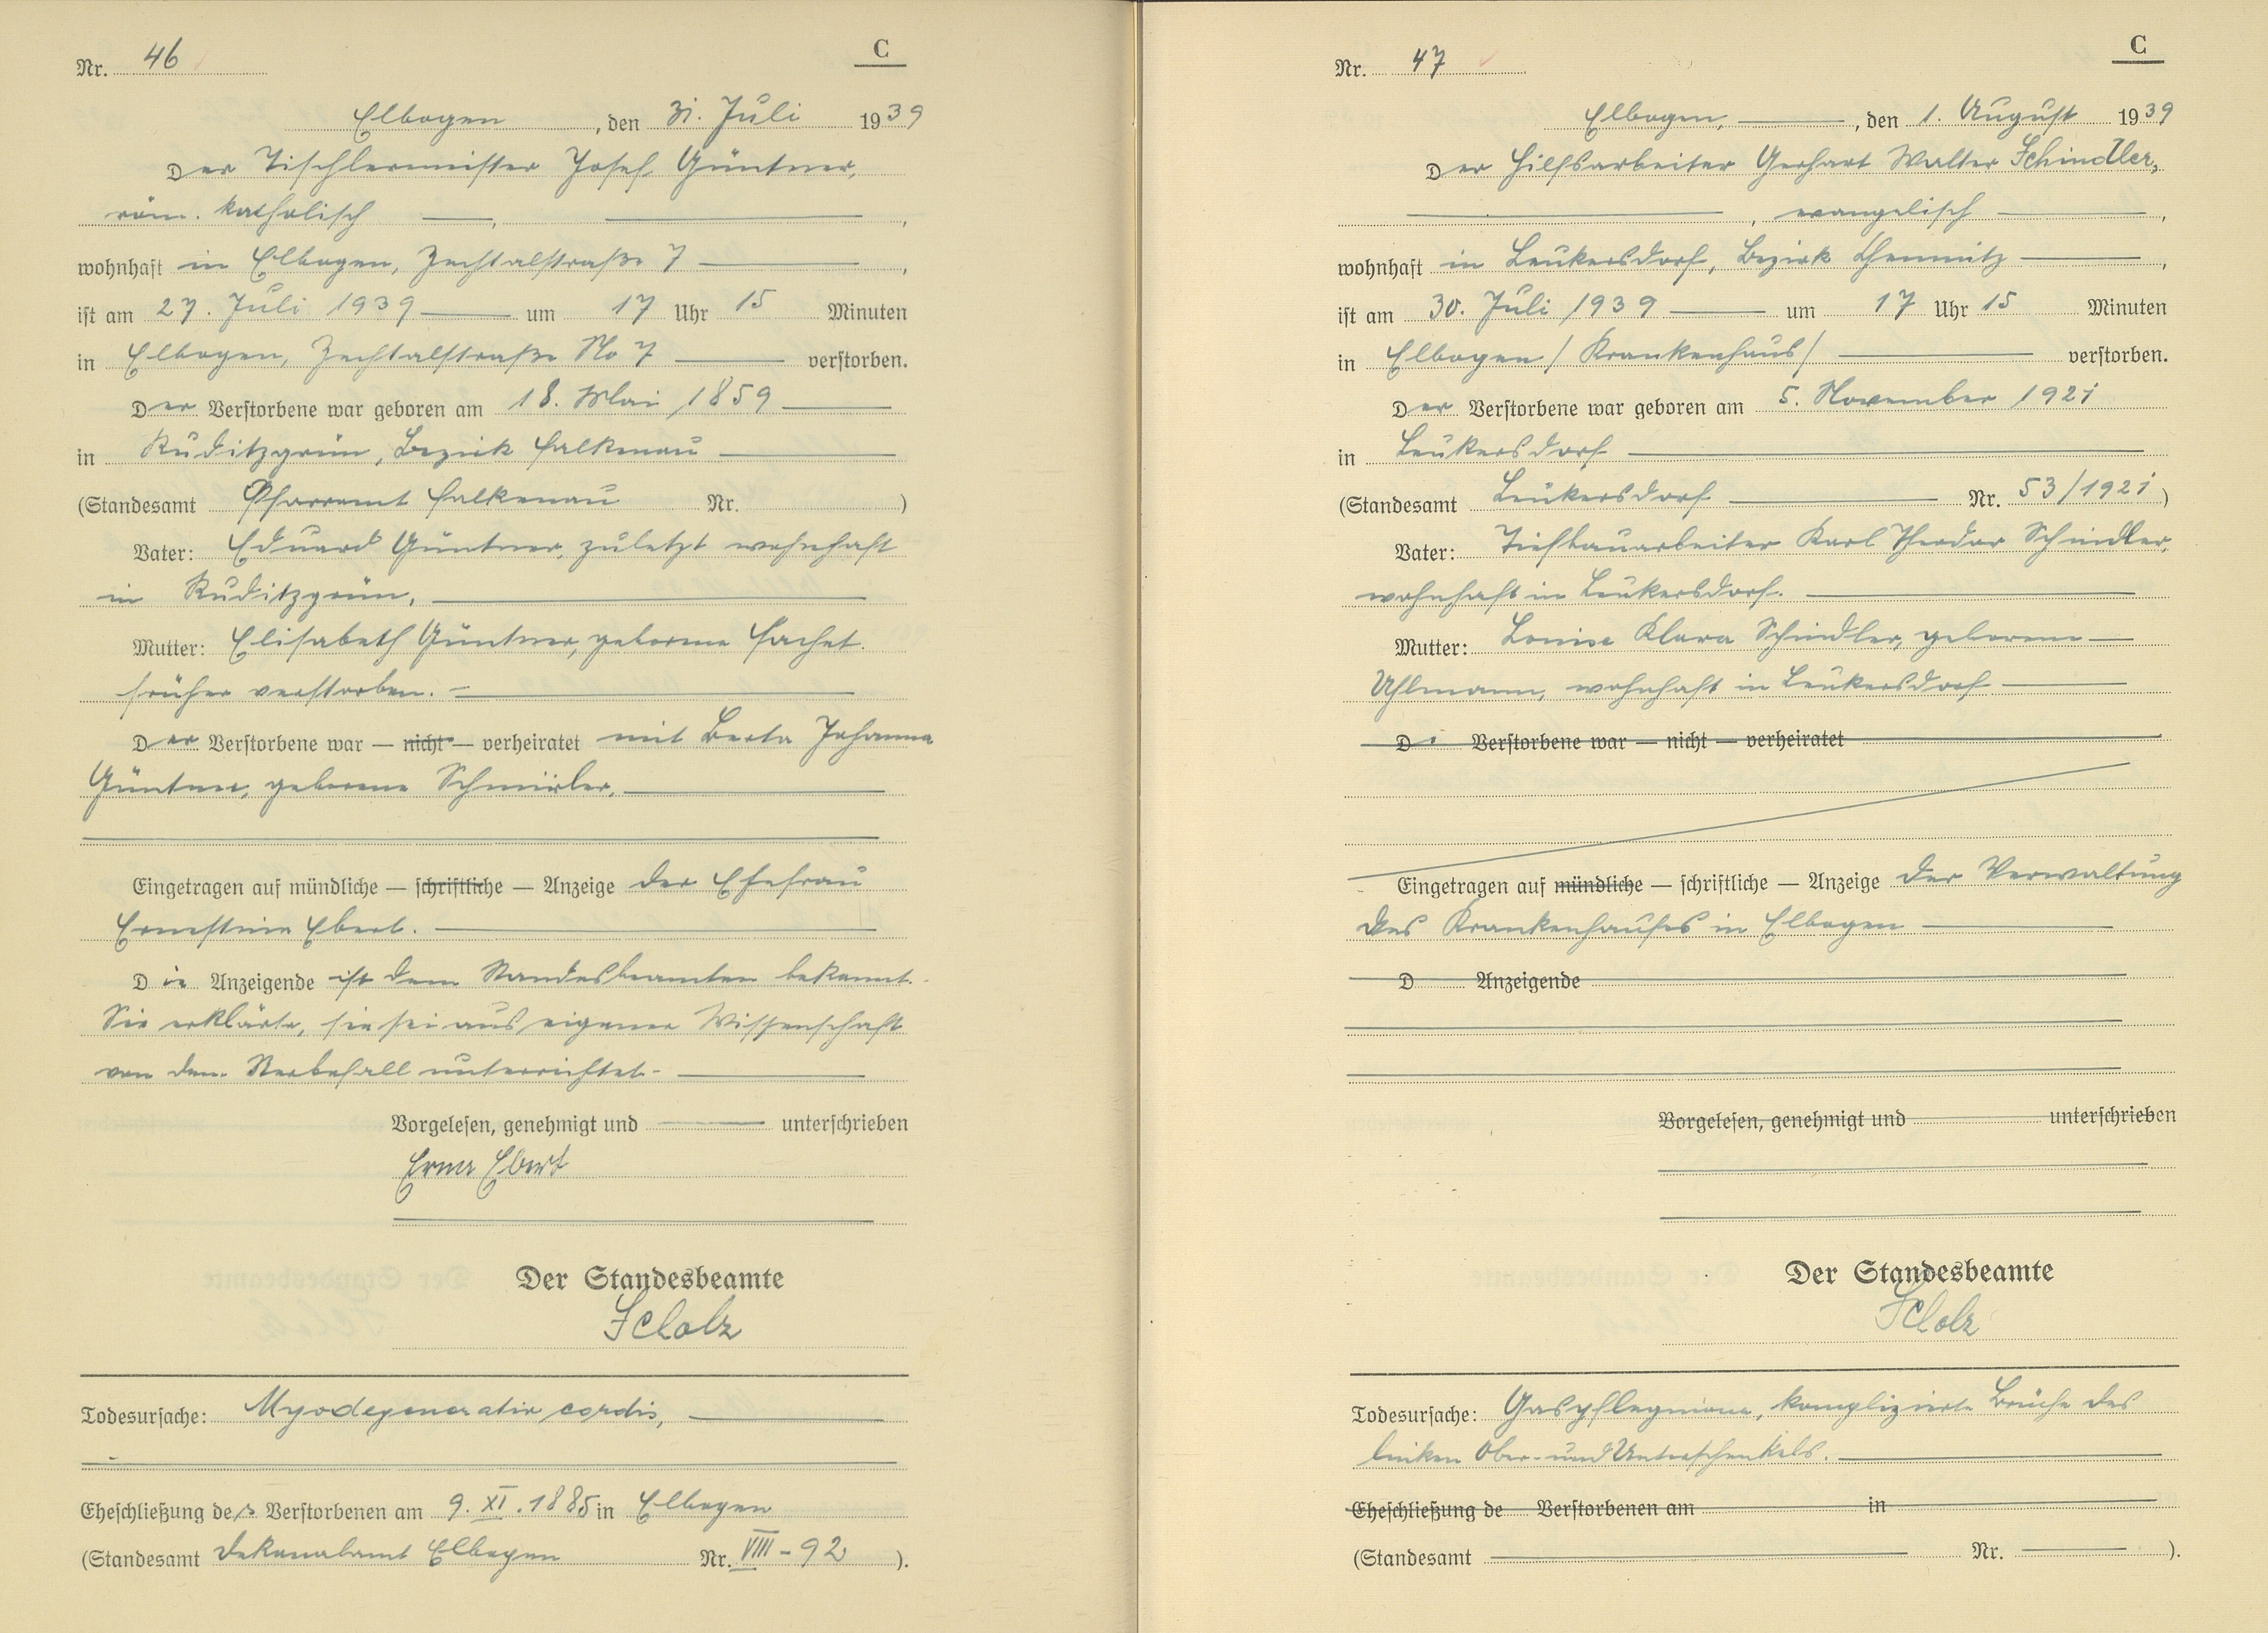 Nr. 46
C
Elbogen, den 31. Juli 1939
Der Tischlermeister Josef Güntner,
röm. katholisch
wohnhaft in Elbogen, Zechtalstraße 7
ist am 27. Juli 1939 um 17 Uhr 15 Minuten
in Elbogen, Zechtalstraße No 7 verstorben.
Der Verstorbene war geboren am 18. Mai 1859
in Ruditzgrün, Bezirk Falkenau
(Standesamt Pfarramt Falkenau Nr. )
Vater: Eduard Güntner, zuletzt wohnhaft
in Ruditzgrün.
Mutter: Elisabeth Güntner, geborene
früher verstorben.
Der Verstorbene war — nicht — verheiratet mit Berta Johanna
Güntner, geborene
Eingetragen auf mündliche — schriftliche — Anzeige der Ehefrau
Ernestine Ebert.
Die Anzeigende ist dem Standesbeamten bekannt.
Sie erklärte, sie sei aus eigener Wissenschaft
von dem Sterbefall unterrichtet.
Vorgelesen, genehmigt und unterschrieben
Erna Ebert
Der Standesbeamte
Scholz
Todesursache: Myodegeneratio cordis,
Eheschließung des Verstorbenen am 9. XI. 1885 in Elbogen
(Standesamt Dekanalamt Elbogen Nr. VIII - 92 ).
Nr. 47
C
Elbogen, den 1. August 1939
Der Hilfsarbeiter Gerhart Walter Schindler,
, evangelisch
wohnhaft in Leukersdorf, Bezirk Chemnitz
ist am 30. Juli 1939 um 17 Uhr 15 Minuten
in Elbogen /Krankenhaus/ verstorben.
Der Verstorbene war geboren am 5. November 1921
in Leukersdorf
(Standesamt Leukersdorf Nr. 53/1921)
Vater: Tiefbauarbeiter Karl Theodor Schindler,
wohnhaft in Leukersdorf.
Mutter: Louise Klara Schindler, geborene
Uhlmann, wohnhaft in Leukersdorf
Di Verstorbene war — nicht — verheiratet
Eingetragen auf mündliche — schriftliche — Anzeige der Verwaltung
des Krankenhauses in Elbogen
D Anzeigende
Vorgelesen, genehmigt und unterschrieben
Der Standesbeamte
Scholz
Todesursache: Gasphlegmone, komplizierte Brüche des
linken Ober- und Unterschenkels.
Eheschließung de Verstorbenen am in
(Standesamt Nr. ).